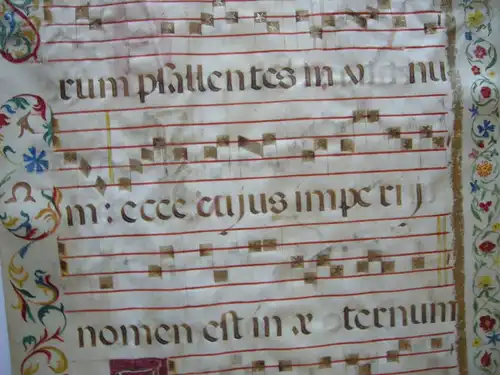 rum psallentes in v nu
m: ecce cujus imperij
nomen est in æ ternum